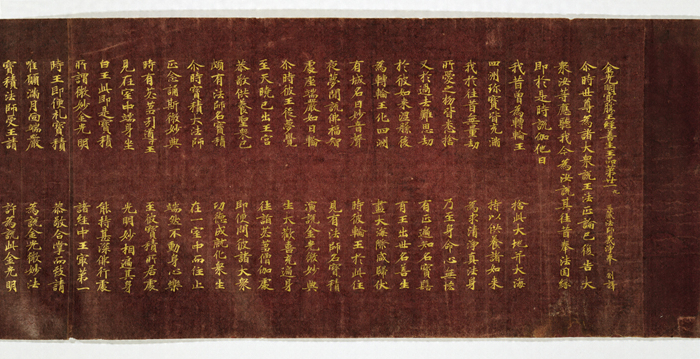 金光明最勝王經善生王品第廿一 三藏法師義淨奉 制譯
尒時世尊為諸大衆說王法正論已復告大
衆汝等應聽我今為汝說其往昔奉法因緣
即於是時說伽他曰
我昔曾為轉輪王 捨此大地并大海
四洲珍寶皆充滿 持以供養諸如來
我於往昔無量劫 為求清淨真法身
所愛之物皆悉捨 乃至身命心無悋
又於過去難思劫 有正遍知名寶髻
於彼如來涅槃後 有王出世名善生
為轉輪王化四洲 盡大海際咸歸伏
有城名曰妙音聲 時彼輪王於此住
夜夢聞說佛福智 見有法師名寶積
處座端嚴如日輪 演說金光微妙典
尒時彼王從夢覺 生大歡喜充遍身
至天曉已出王宮 往詣苾芻僧伽處
恭敬供養聖衆已 即便問彼諸大衆
頗有法師名寶積 功德成就化衆生
尒時寶積大法師 在一室中而住止
正念誦斯微妙典 端然不動身心樂
時有苾芻引導王 至彼寶積所居處
見在室中端身坐 光明妙相遍其身
白王此即是寶積 能持甚深佛行處
所謂微妙金光明 諸經中王最第一
時王即便礼寶積 恭敬合掌而致請
唯願滿月面端嚴 為說金光微妙法
寶積法師受王請 許為說此金光明